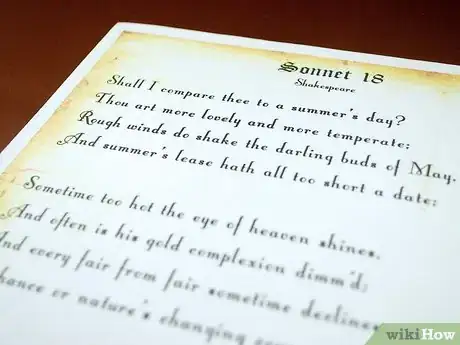 Sonnet 18
Shakespeare
Shall I compare thee to a summer's day?
Thou art more lovely and more temperate:
Rough winds do shake the darling buds of May,
And summer's lease hath all too short a date:
Sometime too hot the eye of heaven shines,
And often is his gold complexion dimm'd;
And every fair from fair sometime declines
hance or nature's changing
wikiHow